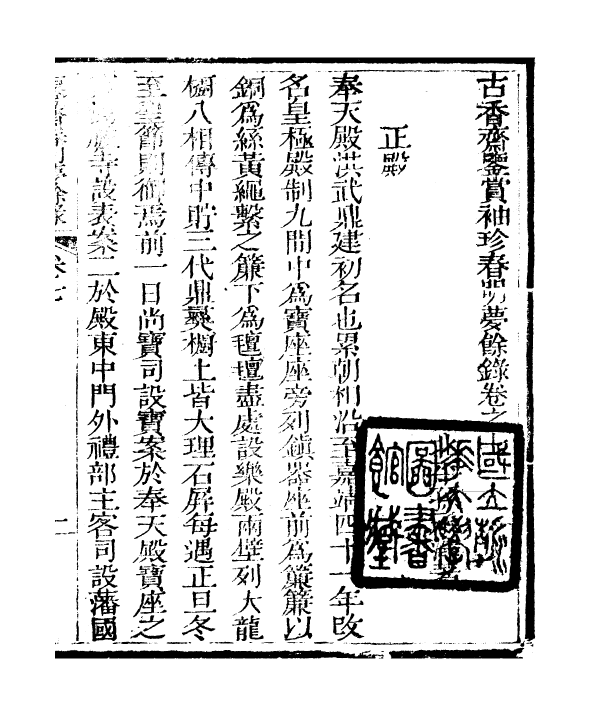 古香齋鑒賞袖珍春明夢餘錄卷之
正殿
奉天殿洪武鼎建初名也累朝相沿至嘉靖四十一年改
名皇極殿制九間中為寶座座旁列鎮器座前為簾簾以
銅為絲黃繩繫之簾下為毯毯盡處設樂殿兩壁列大龍
櫥八相傳中貯三代鼎彝櫥上皆大理石屏每遇正旦冬
至聖節則御焉前一日尚寶司設寶案於奉天殿寶座之
設表案二於殿東中門外禮部主客司設藩國
卷七
一